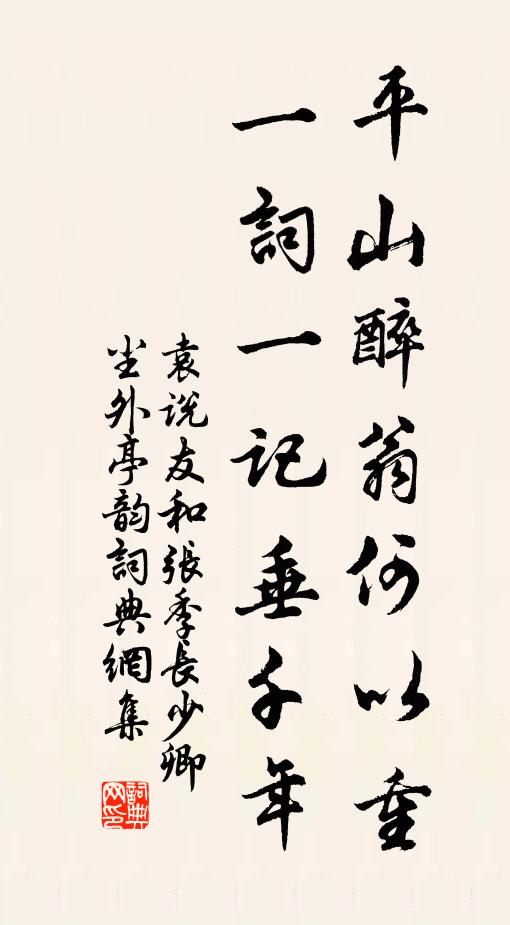 平山醉翁何以重
一詞一記垂千年
袁说友和張季長少卿
尘外亭韵詞典網集
詞典
网印